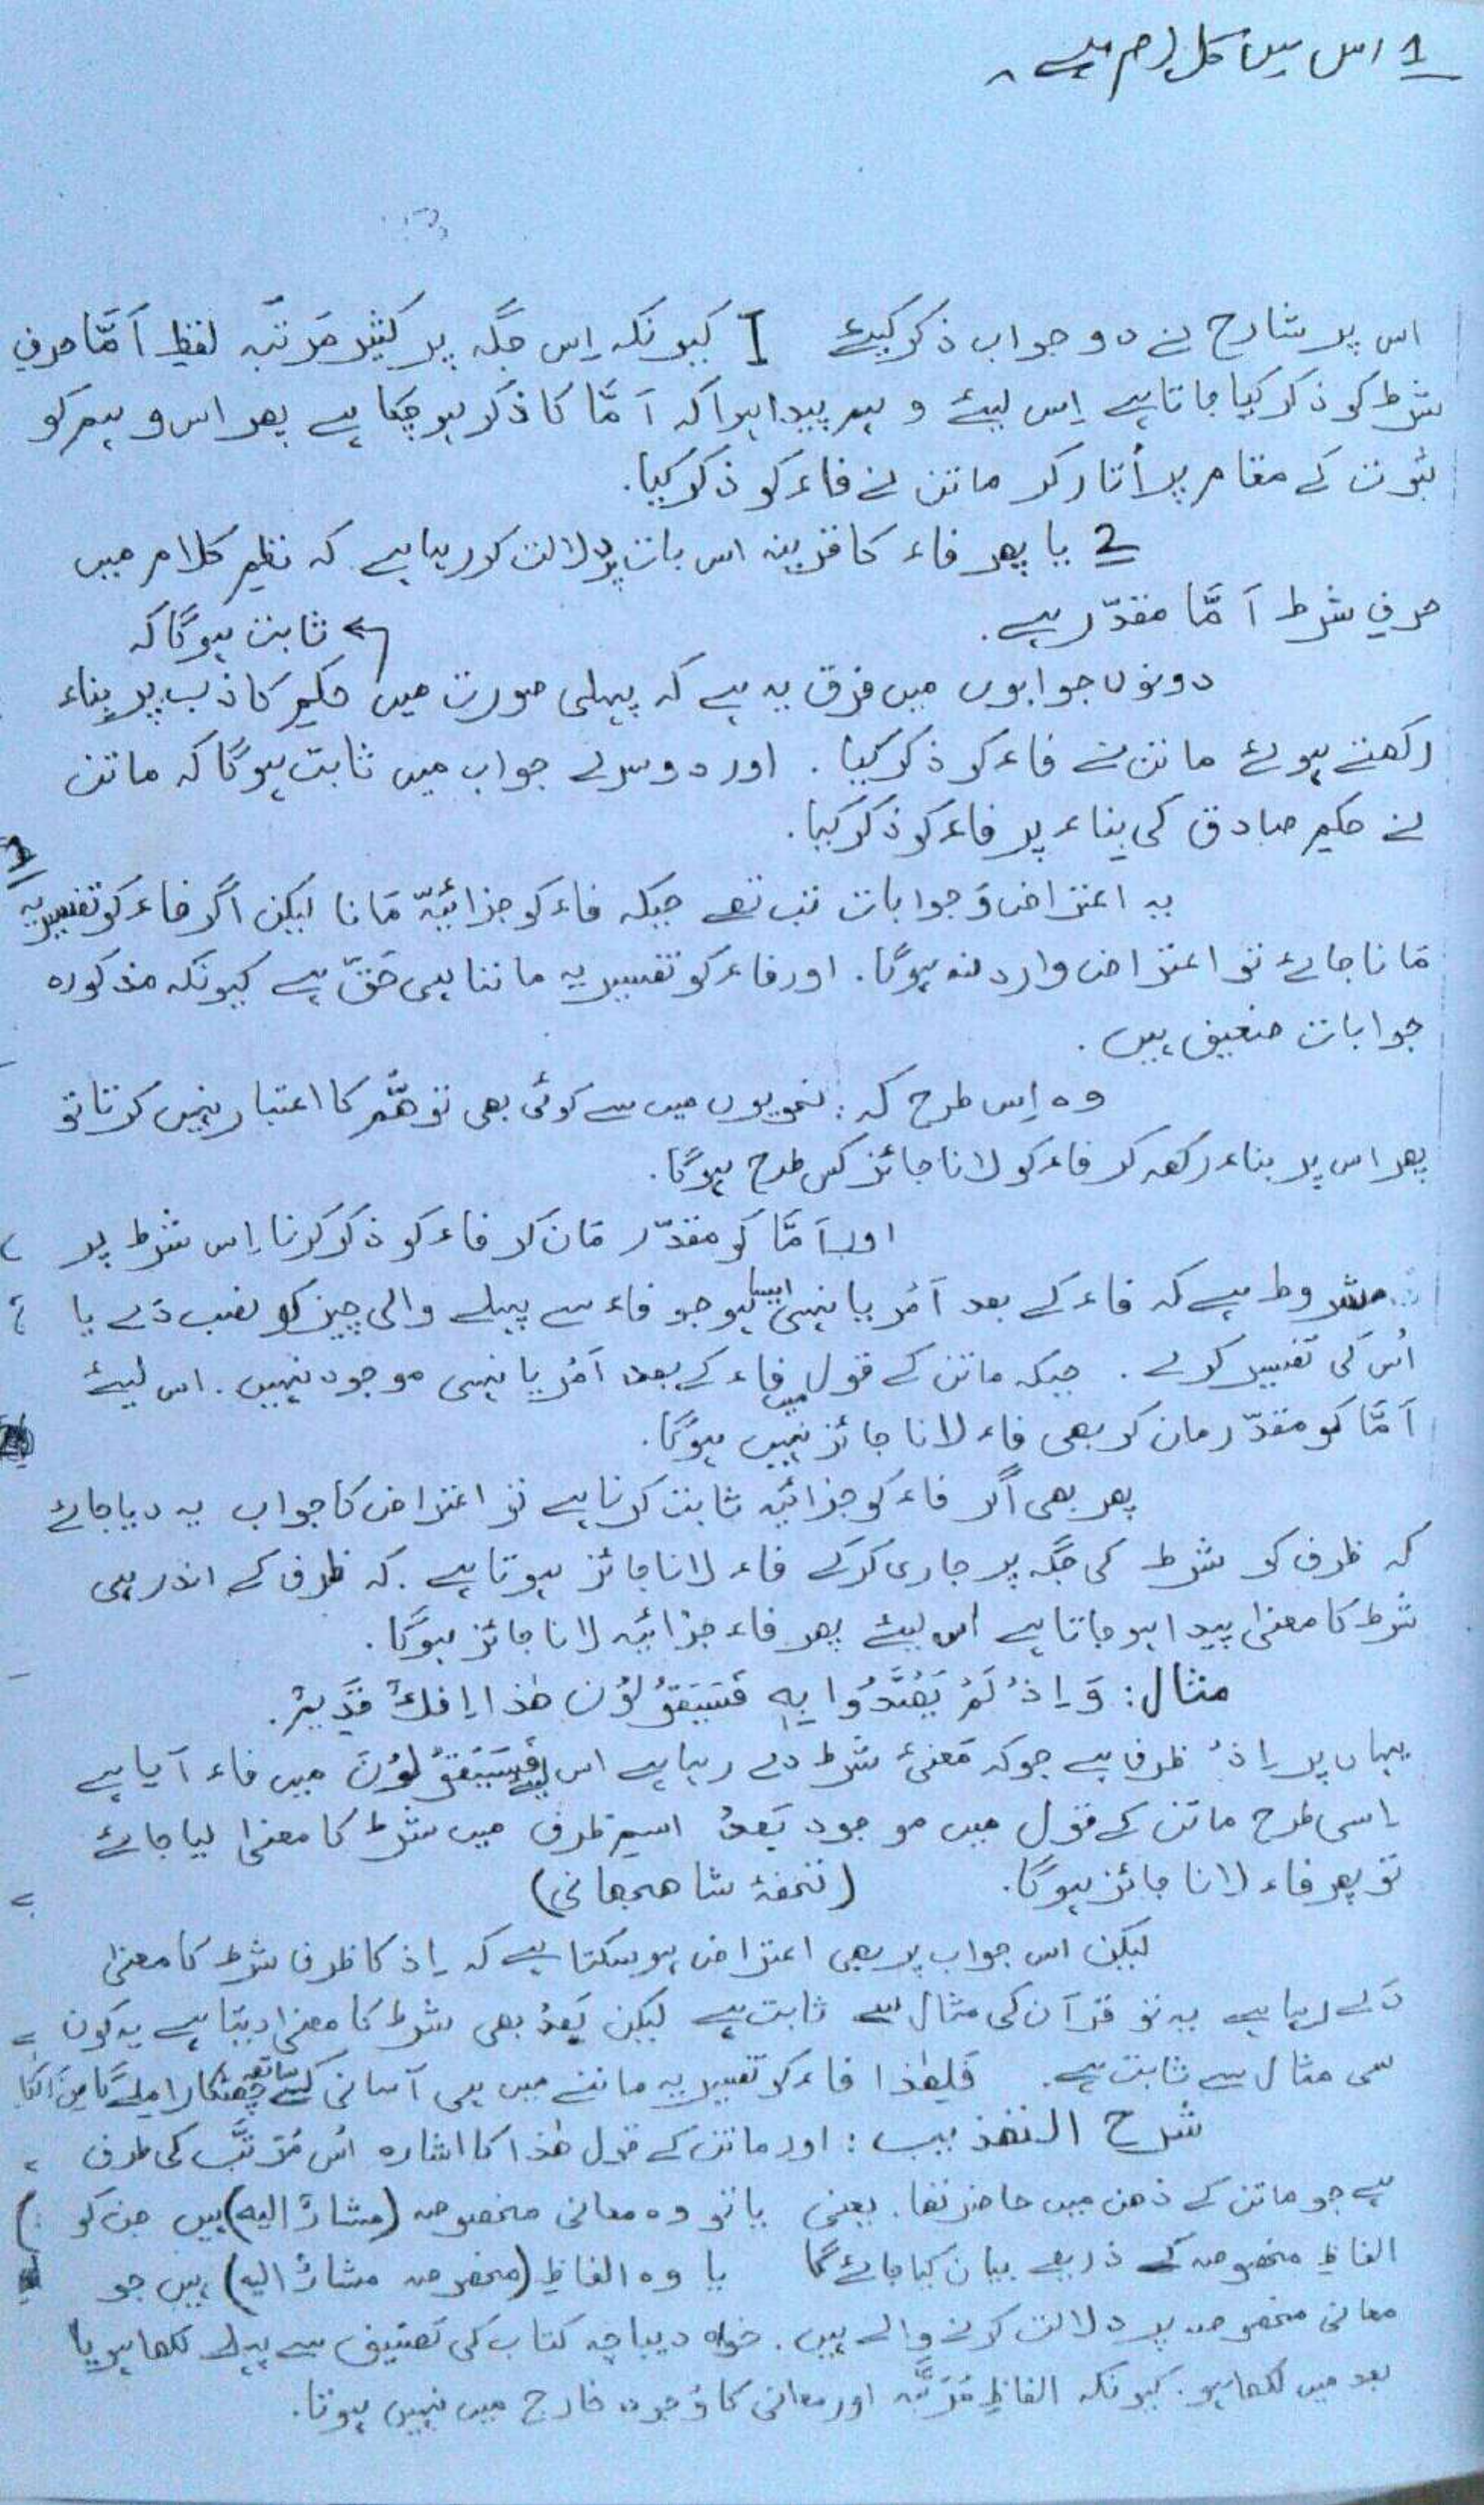 1 اس میں کلام ہے۔
اس پر شارح نے دو جواب ذکر کیئے 1 کیونکہ اِس جگہ پر کثیر مَرتَبہ لفظِ اَمَّا حرفِ
شرط کو ذکر کیا جاتا ہے اِس لیئے وہم پیدا ہوا کہ اَمَّا کا ذکر ہو چکا ہے پھر اس وہم کو
ثبوت کے مقام پر اُتار کر ماتن نے فاء کو ذکر کیا.
2 یا پھر فاء کا قرینہ اس بات پر دلالت کر رہا ہے کہ نظمِ کلام میں
حرفِ شرط اَمَّا مقدّر ہے.
ثابت ہوگا کہ
دونوں جوابوں میں فرق یہ ہے کہ پہلی صورت میں حکمِ کاذب پر بِناء
رکھتے ہوئے ماتن نے فاء کو ذکر کیا. اور دوسرے جواب میں ثابت ہوگا کہ ماتن
نے حکمِ صادق کی بناء پر فاء کو ذکر کیا.
1
یہ اعتراض وَ جوابات تب تھے جبکہ فاء کو جزائیّہ مَانا لیکن اگر فاء کو تفسیریہ
مَانا جائے تو اعتراض وارد نہ ہوگا. اور فاء کو تفسیریہ ماننا ہی حَقّ ہے کیونکہ مذکورہ
جوابات ضعیف ہیں.
وہ اِس طرح کہ: نحویوں میں سے کوئی بھی توھُّم کا اعتبار نہیں کرتا تو
پھر اس پر بناء رکھ کر فاء کو لانا جائز کس طرح ہوگا.
اور اَمَّا کو مقدّر مَان کر فاء کو ذکر کرنا اِس شرط پر
مشروط ہے کہ فاء کے بعد اَمْر یا نہی ایسا ہو جو فاء سے پہلے والی چیز کو نصب دَے یا
اُس کی تفسیر کرے. جبکہ ماتن کے قول میں فاء کے بعد اَمْر یا نہی موجود نہیں. اس لیئے
اَمَّا کو مقدّر مان کر بھی فاء لانا جائز نہیں ہوگا.
پھر بھی اگر فاء کو جزائیہ ثابت کرنا ہے تو اعتراض کا جواب یہ دیا جائے
کہ ظرف کو شرط کی جگہ پر جاری کرکے فاء لانا جائز ہوتا ہے. کہ ظرف کے اندر ہی
شرط کا معنیٰ پیدا ہو جاتا ہے اس لیئے پھر فاء جزائیہ لانا جائز ہوگا.
مثال: وَ اِذْ لَمْ یَھْتَدُوا بِہٖ فَسَیَقُوْلُوْنَ ھٰذا اِفْکٌ قَدِیْمٌ.
یہاں پر اِذْ ظرف ہے جوکہ مَعنیٔ شرط دے رہا ہے اس لیے فَسَیَقُوْلُوْنَ میں فاء آیا ہے
اِسی طرح ماتن کے قول میں موجود بَعدُ اسمِ ظرف میں شرط کا معنیٰ لیا جائے
تو پھر فاء لانا جائز ہوگا. (تحفۂ شاھجھانی)
لیکن اس جواب پر بھی اعتراض ہو سکتا ہے کہ اِذ کا ظرف شرط کا معنیٰ
دَے رہا ہے یہ تو قرآن کی مثال سے ثابت ہے لیکن بَعدُ بھی شرط کا معنیٰ دیتا ہے یہ کون
سی مثال سے ثابت ہے. فَلِھٰذا فاء کو تفسیریہ ماننے میں ہی آسانی کے ساتھ چھٹکارا ملے گا
شرح التھذیب: اور ماتن کے قول ھٰذا کا اشارہ اُس مُرَتَّب کی طرف
ہے جو ماتن کے ذھن میں حاضر تھا. یعنی یا تو وہ معانی مخصوصہ (مشارٌ الیہ) ہیں جن کو
الفاظِ مخصوصہ کے ذریعے بیان کیا جائے گا یا وہ الفاظِ (مخصوصہ مشارٌ الیہ) ہیں جو
معانی مخصوصہ پر دلالت کرنے والے ہیں. خواہ دیباچہ کتاب کی تصنیف سے پہلے لکھا ہو یا
بعد میں لکھا ہو. کیونکہ الفاظِ مُرَتَّبہ اور معانی کا وُجود خارج میں نہیں ہوتا.